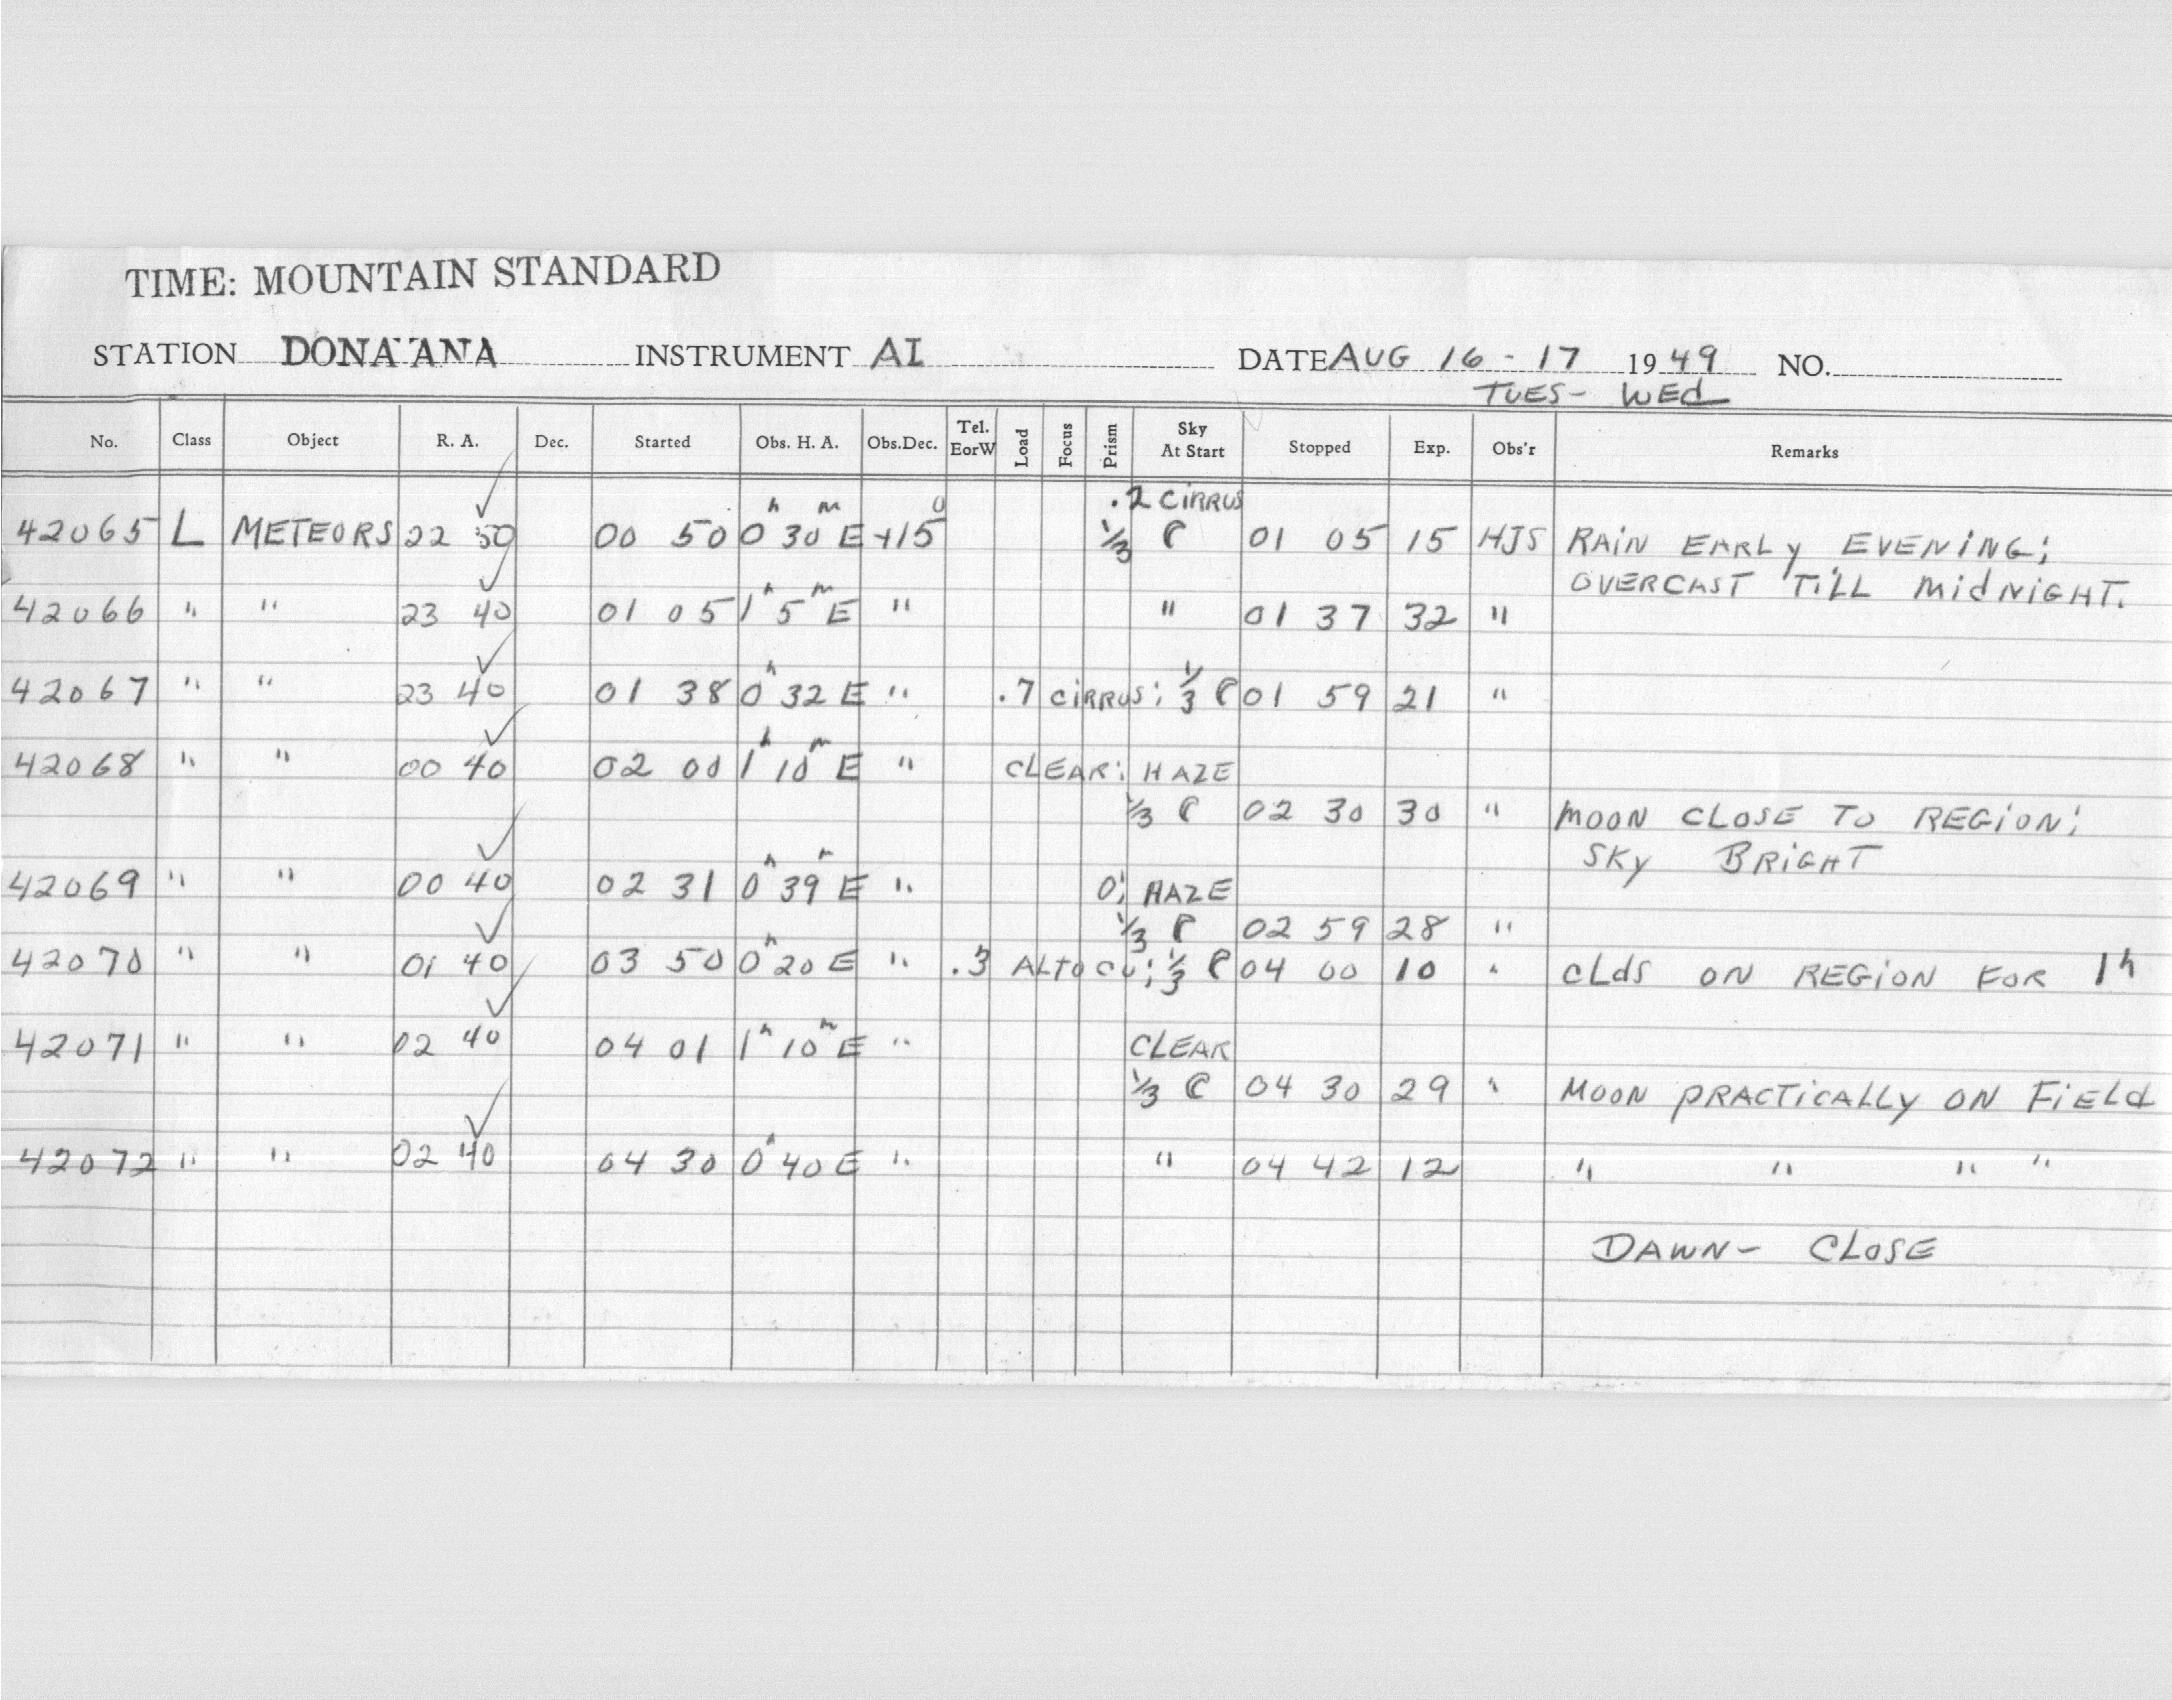 TIME: MOUNTAIN STANDARD
STATION DONA ANA INSTRUMENT AI DATE AUG 16 - 17 1949 NO.
TUES - WEd
No. Class Object R. A. Dec. Started Obs. H. A. Obs.Dec. Tel. EorW Load Focus Prism Sky At Start Stopped Exp. Obs'r Remarks
.2 CIRRUS
42065 L METEORS 22 50 00 50 0h 30m E +15° 1/3 01 05 15 HJS RAIN EARLY EVENING;
OVERCAST TILL MIDNIGHT.
42066 " " 23 40 01 05 1h 5m E " " 01 37 32 "
42067 " " 23 40 01 38 0h 32 E " .7 CIRRUS; 1/3 01 59 21 "
42068 " " 00 40 02 00 1h 10m E " CLEAR; HAZE
1/3 02 30 30 " MOON CLOSE TO REGION;
SKY BRIGHT
42069 " " 00 40 02 31 0h 39m E " 0; HAZE
1/3 02 59 28 "
42070 " " 01 40 03 50 0h 20 E " .3 ALTO CU; 1/3 04 00 10 " CLdS ON REGION FOR 1h
42071 " " 02 40 04 01 1h 10m E " CLEAR
1/3 04 30 29 " MOON PRACTICALLY ON FIELd
42072 " " 02 40 04 30 0h 40 E " " 04 42 12 " " " "
DAWN - CLOSE